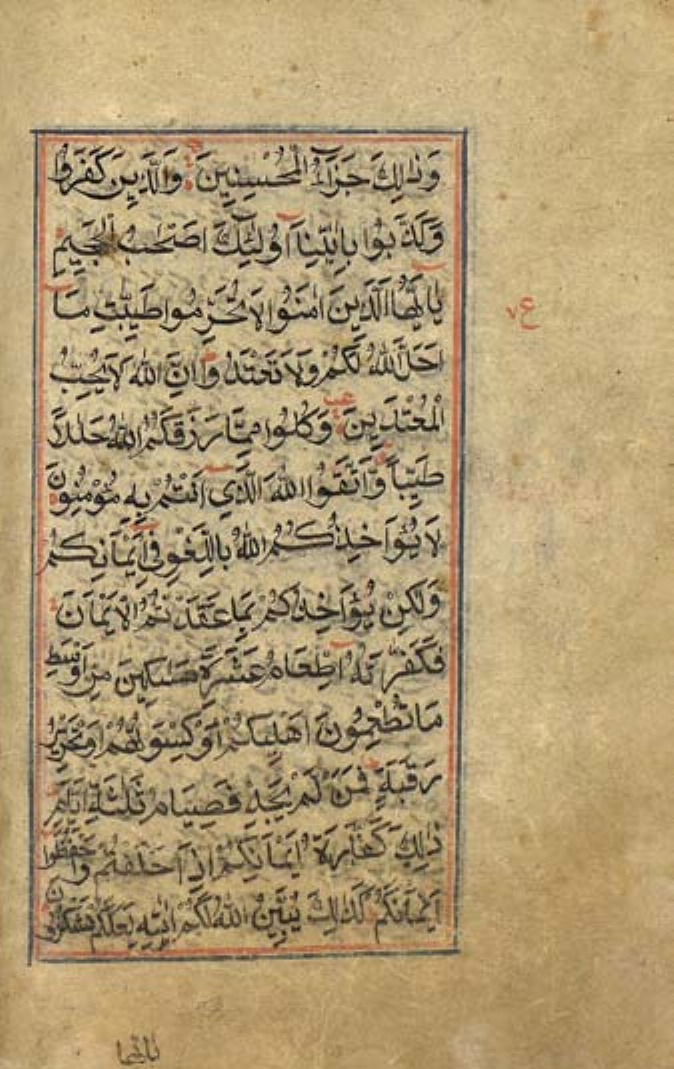 وَذَٰلِكَ جَزَآءُ الْمُحْسِنِينَ وَالَّذِينَ كَفَرُوا
وَكَذَّبُوا بِاٰيٰتِنَآ اُولٰٓئِكَ اَصْحٰبُ الْجَحِيمِ
يٰٓاَيُّهَا الَّذِينَ اٰمَنُوا لَا تُحَرِّمُوا طَيِّبٰتِ مَآ
اَحَلَّ اللّٰهُ لَكُمْ وَلَا تَعْتَدُوا اِنَّ اللّٰهَ لَا يُحِبُّ
الْمُعْتَدِينَ وَكُلُوا مِمَّا رَزَقَكُمُ اللّٰهُ حَلٰلًا
طَيِّبًا وَّاتَّقُوا اللّٰهَ الَّذِيٓ اَنْتُمْ بِهِ مُؤْمِنُونَ
لَا يُؤَاخِذُكُمُ اللّٰهُ بِاللَّغْوِ فِيٓ اَيْمَانِكُمْ
وَلٰكِنْ يُؤَاخِذُكُمْ بِمَا عَقَّدْتُمُ الْاَيْمَانَ
فَكَفَّارَتُهُ اِطْعَامُ عَشَرَةِ مَسٰكِينَ مِنْ اَوْسَطِ
مَا تُطْعِمُونَ اَهْلِيكُمْ اَوْ كِسْوَتُهُمْ اَوْ تَحْرِيرُ
رَقَبَةٍ فَمَنْ لَمْ يَجِدْ فَصِيَامُ ثَلٰثَةِ اَيَّامٍ
ذٰلِكَ كَفَّارَةُ اَيْمَانِكُمْ اِذَا حَلَفْتُمْ وَاحْفَظُوا
اَيْمَانَكُمْ كَذٰلِكَ يُبَيِّنُ اللّٰهُ لَكُمْ اٰيٰتِهِ لَعَلَّكُمْ تَشْكُرُونَ
ياايها